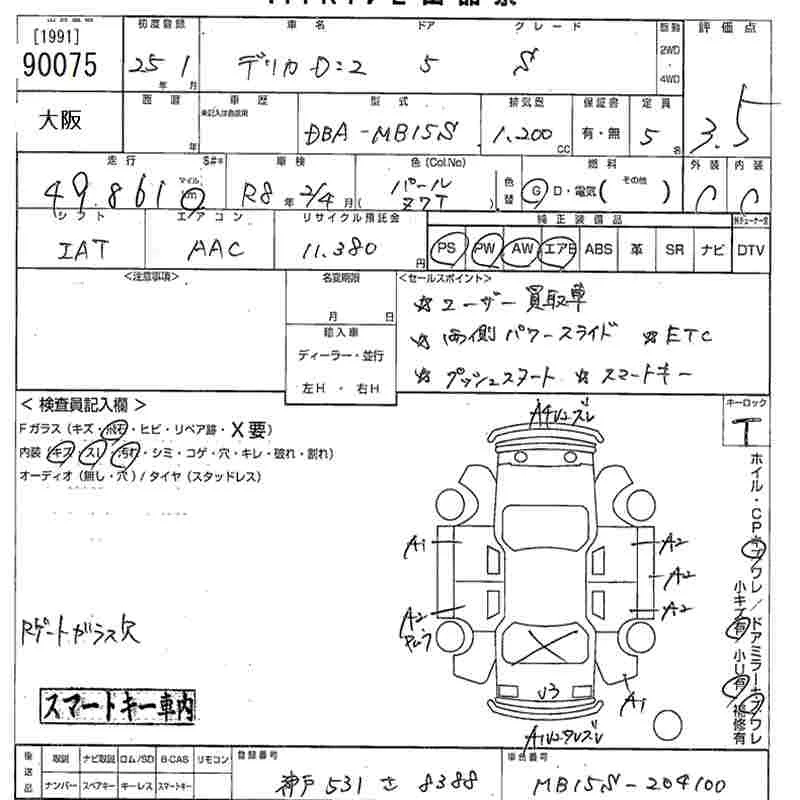 [1991] 初度登録 車名 ドア グレード 駆動 評価点
90075 25年1月 デリカD:2 5 S 2WD・4WD 3.5
大阪 西暦 年 車歴 未記入は自家用 型式 排気量 保証書 定員
DBA-MB15S 1,200CC 有・無 5名
走行 S#* 車検 色(Col.No) 色替 燃料 外装 内装
49,861 マイル km R8年2/4月 パール ヌワT ( ) G D・電気 (その他 ) C C
シフト エアコン リサイクル預託金 純正装備品
IAT AAC 11,380円 PS PW AW エアB ABS 革 SR ナビ DTV
<注意事項> 名変期限 <セールスポイント>
月 日 ☆ユーザー買取車
輸入車 ☆両側パワースライド ☆ETC
ディーラー・並行 ☆プッシュスタート ☆スマートキー
左H・右H
<検査員記入欄> キーロック
Fガラス(キズ・飛石・ヒビ・リペア跡・X要) T
内装(キズ・スレ・汚れ・シミ・コゲ・穴・キレ・破れ・割れ)
オーディオ(無し・穴)/タイヤ(スタッドレス)
A4U2ズレ
A1 A2
A2
A2 A2
Rゲートガラス欠
U3
A1
A1U2ズレ
ホイル・CPキズワレ/ドアミラーキズワレ
小キズ有 小U有 補修有
スマートキー車内
後送品 取説 ナビ取説 ロム/SD B-CAS リモコン 登録番号 車台番号
ナンバー スペアキー キーレス スマートキー 神戸 531 さ 8388 MB15S-204100